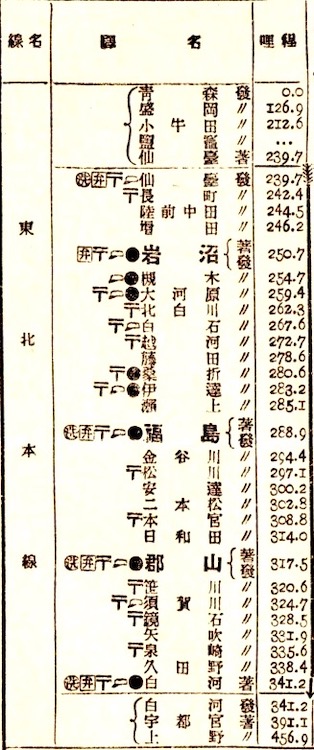 線名 驛名 哩程
東北本線
青森 發 0.0
盛岡 〃 126.9
小牛田 〃 212.6
鹽竈 〃 ...
仙臺 著 239.7
洗 弁 〒 仙臺 發 239.7
〒 長町 〃 242.4
陸前中田 〃 244.5
増田 〃 246.2
弁 〒 ● 岩沼 著發 250.7
● 槻木 〃 254.7
〒 ● 大河原 〃 259.4
〒 北白川 〃 262.3
〒 白石 〃 267.6
〒 越河 〃 272.7
藤田 〃 278.6
〒 ● 桑折 〃 280.6
〒 ● 伊達 〃 283.2
瀬上 〃 285.1
洗 弁 〒 ● 福島 著發 288.9
金谷川 〃 294.4
〒 松川 〃 297.1
安達 〃 300.2
二本松 〃 302.8
〒 本宮 〃 308.8
日和田 〃 314.0
洗 弁 〒 ● 郡山 著發 317.5
〒 笹川 〃 320.6
〒 須賀川 〃 324.7
〒 鏡石 〃 328.5
〒 矢吹 〃 331.9
〒 泉崎 〃 335.6
久田野 〃 338.4
洗 弁 〒 ● 白河 著 341.2
白河 發 341.2
宇都宮 著 391.1
上野 〃 456.9